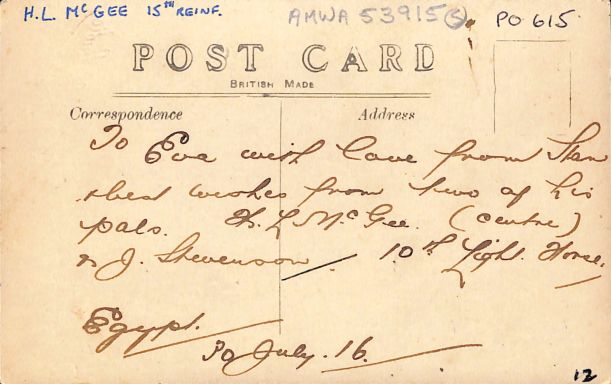 H.L. McGEE 15TH REINF.
AMWA 53915(S) PO 615
POST CARD
BRITISH MADE
Correspondence Address
To Eva with love from Stan
& best wishes from two of his
pals. H. L McGee. (centre)
& J. Stevenson 10th Light Horse.
Egypt.
30 July. 16.
12